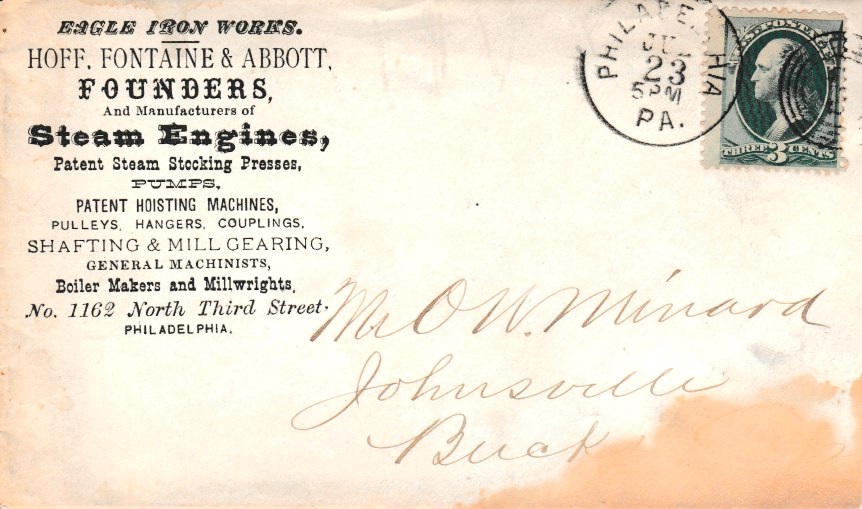 EAGLE IRON WORKS.
HOFF, FONTAINE & ABBOTT,
FOUNDERS,
And Manufacturers of
Steam Engines,
Patent Steam Stocking Presses,
PUMPS,
PATENT HOISTING MACHINES,
PULLEYS, HANGERS, COUPLINGS,
SHAFTING & MILL GEARING,
GENERAL MACHINISTS,
Boiler Makers and Millwrights,
No. 1162 North Third Street.
PHILADELPHIA.
PHILADELPHIA
JUL
23
5PM
PA.
U.S. POSTAGE
THREE 3 CENTS
Mr O W. Minard
Johnsville
Buck